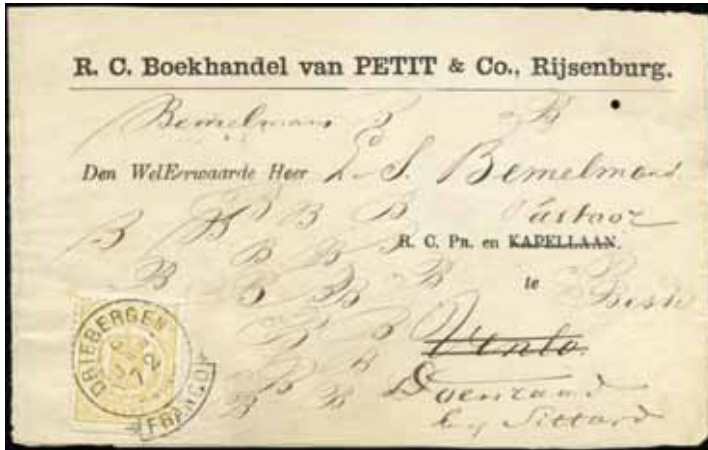 R. C. Boekhandel van PETIT & Co., Rijsenburg.
Bemelmans B B
Den WelEerwaarde Heer L. S. Bemelmans
Pastoor
B B B B B
R. C. Pn. en KAPELLAAN.
te
Venlo.
Doenraad
by Sittard
DRIEBERGEN
FRANCO